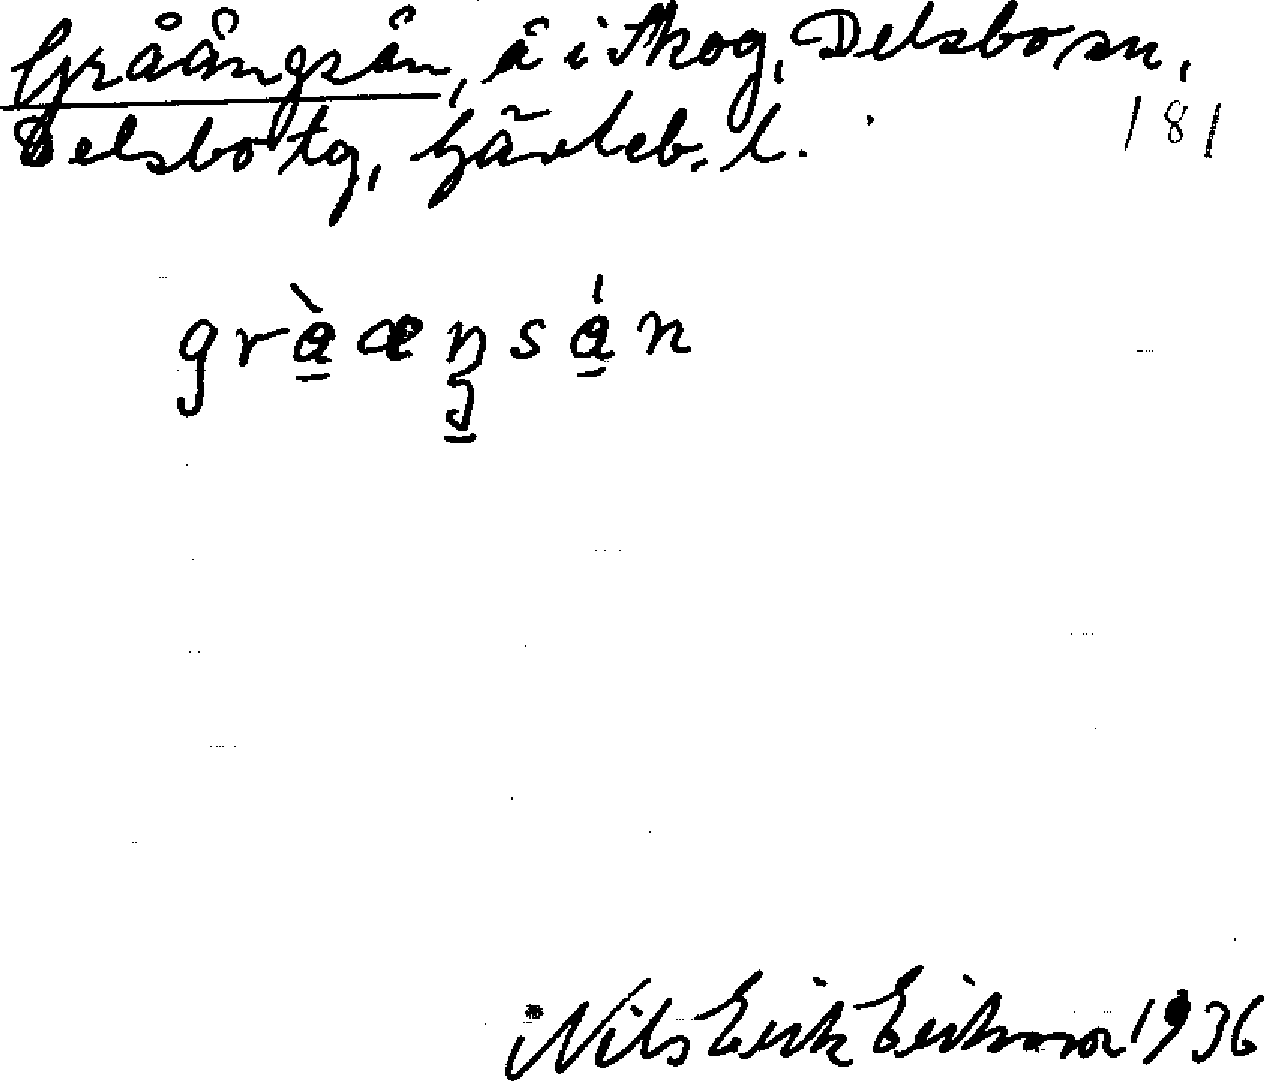 Gråängsån, å i skog, Delsbo sn,
Delsbo tg, Gävleb. l.
181
gràæŋsán
Nils Erik Erikson 1936